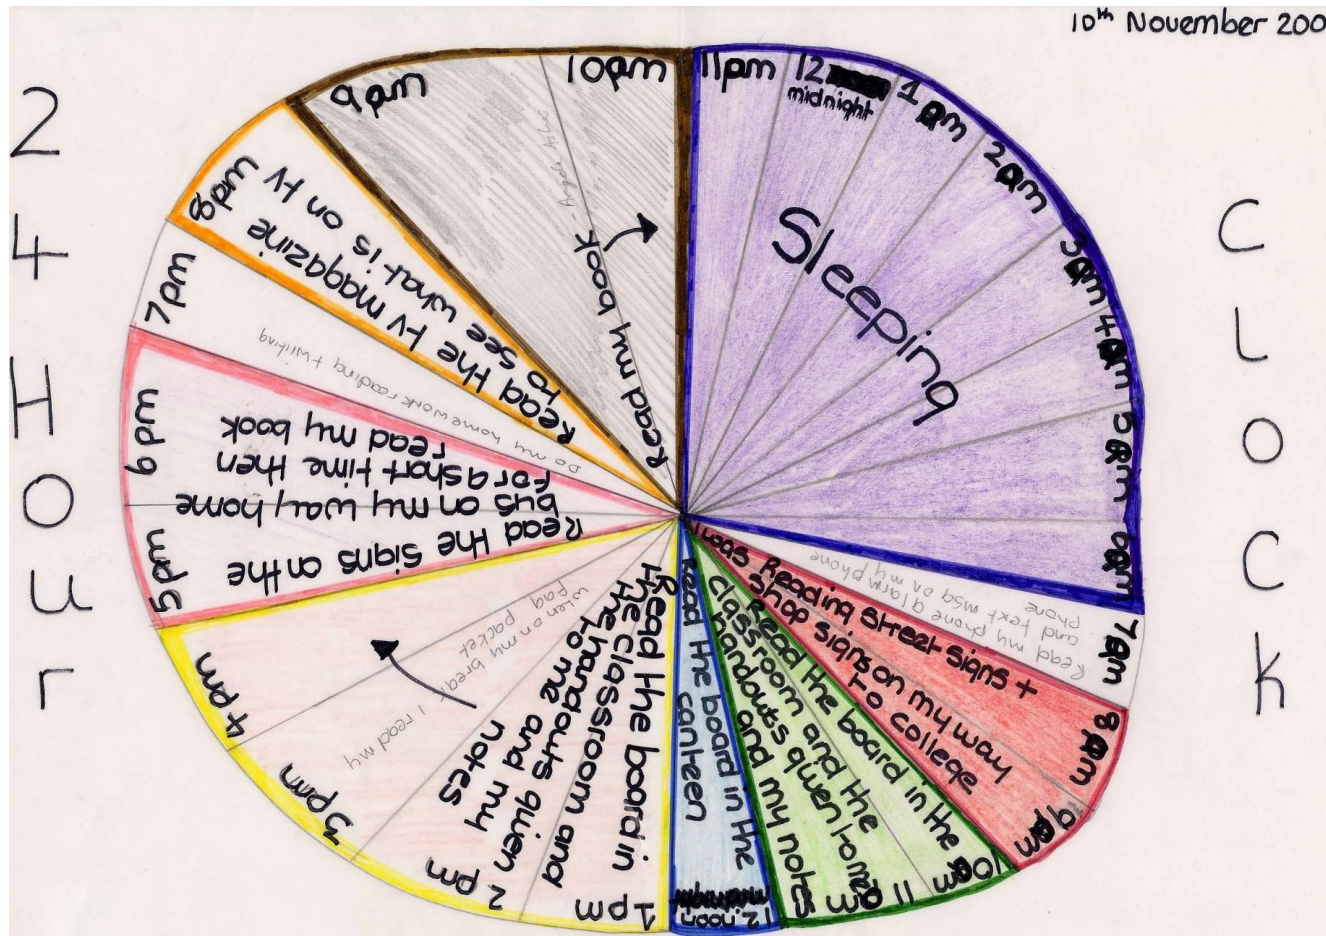 10th November 200
24 Hour
CLOCK
11pm
12
midnight
1am
2am
3am
4am
5am
6am
Sleeping
7am
Read my phone alarm
and text msg on my
phone
8am
9am
I was Reading street signs +
shop signs on my way
to college
10am
11am
Read the board in the
classroom and the
handouts given to me
and my notes
12 noon
Read the board in the
canteen
1pm
2pm
3pm
4pm
Read the board in
the classroom and
the handouts given
to me and my
notes
when on my break I read my
Faq packet
5pm
6pm
Read the signs on the
bus on my way home
for a short time then
read my book
7pm
Do my homework reading + writing
8pm
Read the tv magazine
to see what is on tv
9pm
10pm
Read my book